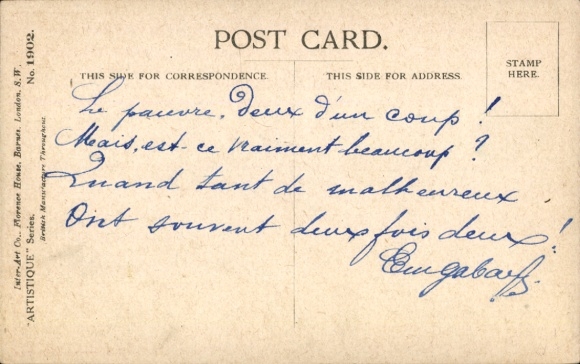 POST CARD.
THIS SIDE FOR CORRESPONDENCE.
THIS SIDE FOR ADDRESS.
STAMP
HERE.
Le pauvre, deux d'un coup !
Mais, est-ce vraiment beaucoup ?
Quand tant de malheureux
Ont souvent deux fois deux !
Inter-Art Co., Florence House, Barnes, London, S.W.
"ARTISTIQUE" Series. No. 1902.
British Manufacture Throughout.